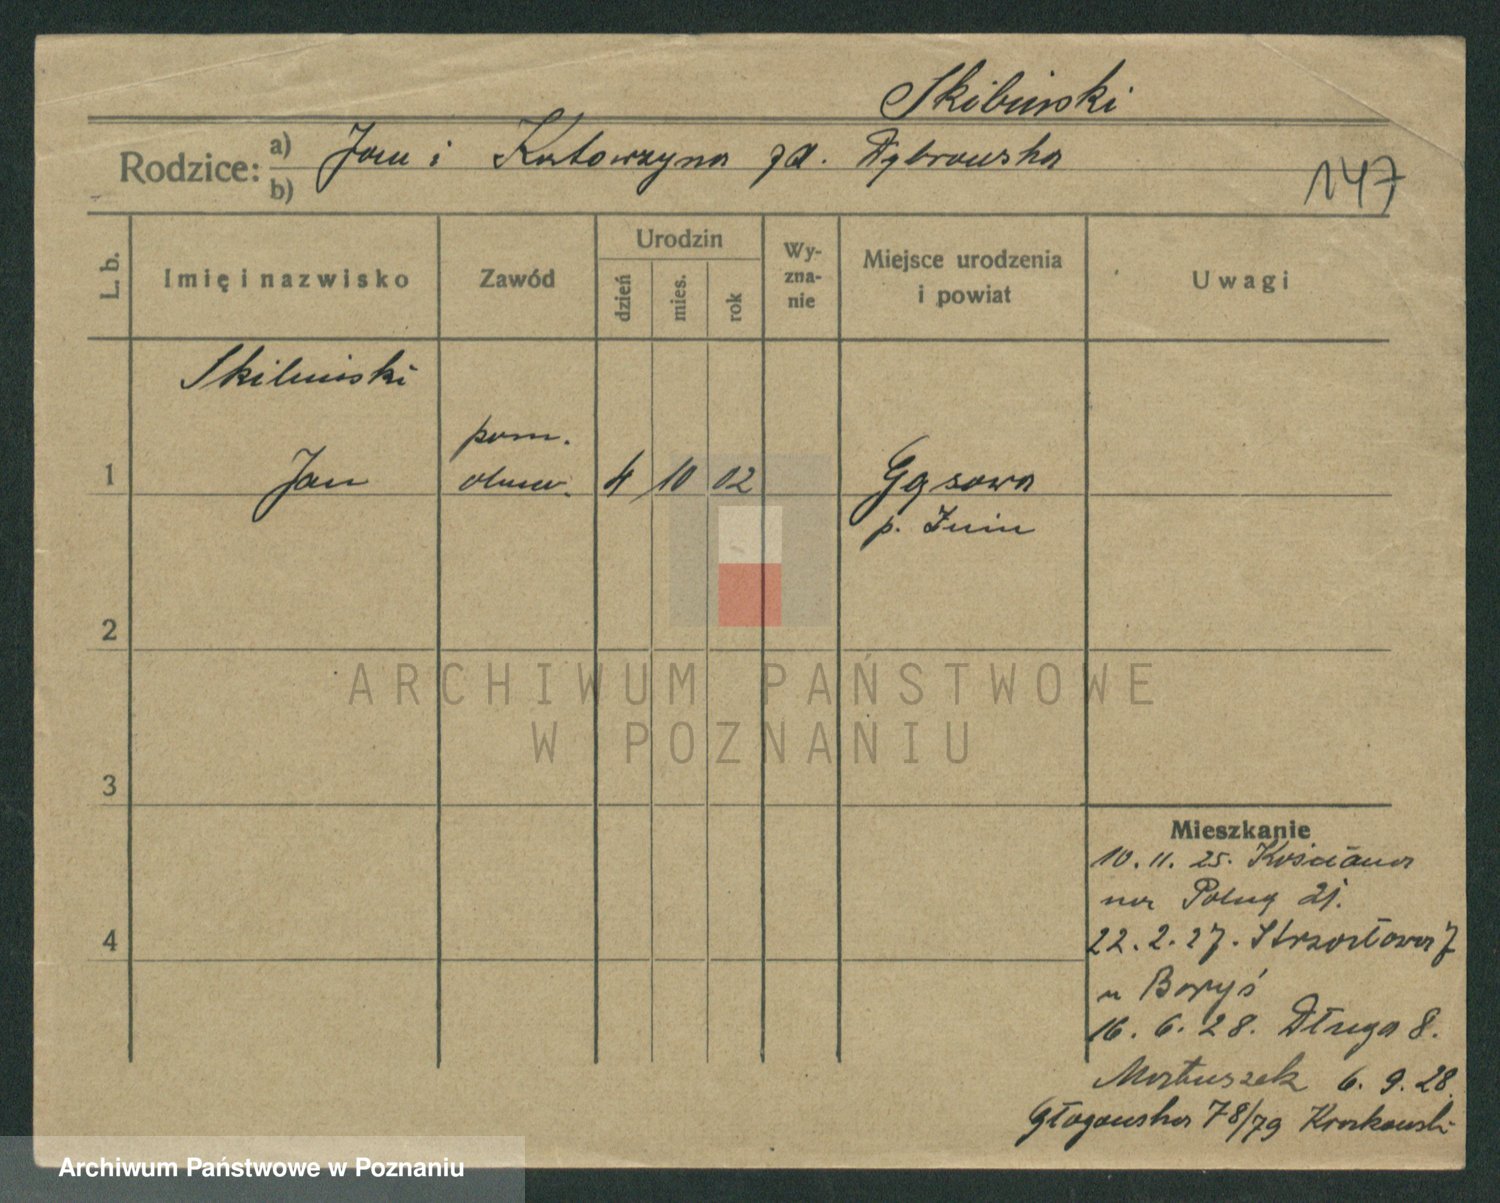 Skibiński
Rodzice: a) Jan i Katarzyna zd. Dąbrowska
b)
147
L. b.
Imię i nazwisko
Zawód
Urodzin
dzień
mies.
rok
Wy-
zna-
nie
Miejsce urodzenia
i powiat
Uwagi
Skibiński
1 Jan
pom.
4 10 02
Gąsawa
p. Żnin
2
ARCHIWUM PAŃSTWOWE
W POZNANIU
3
4
Mieszkanie
10. 11. 25. Kościana
21.
22. 2. 27. Strzałowa 7
u Boryś
16. 6. 28. Długa 8.
Matuszek 6. 9. 28.
Głogowska 78/79 Kraskowski
Archiwum Państwowe w Poznaniu